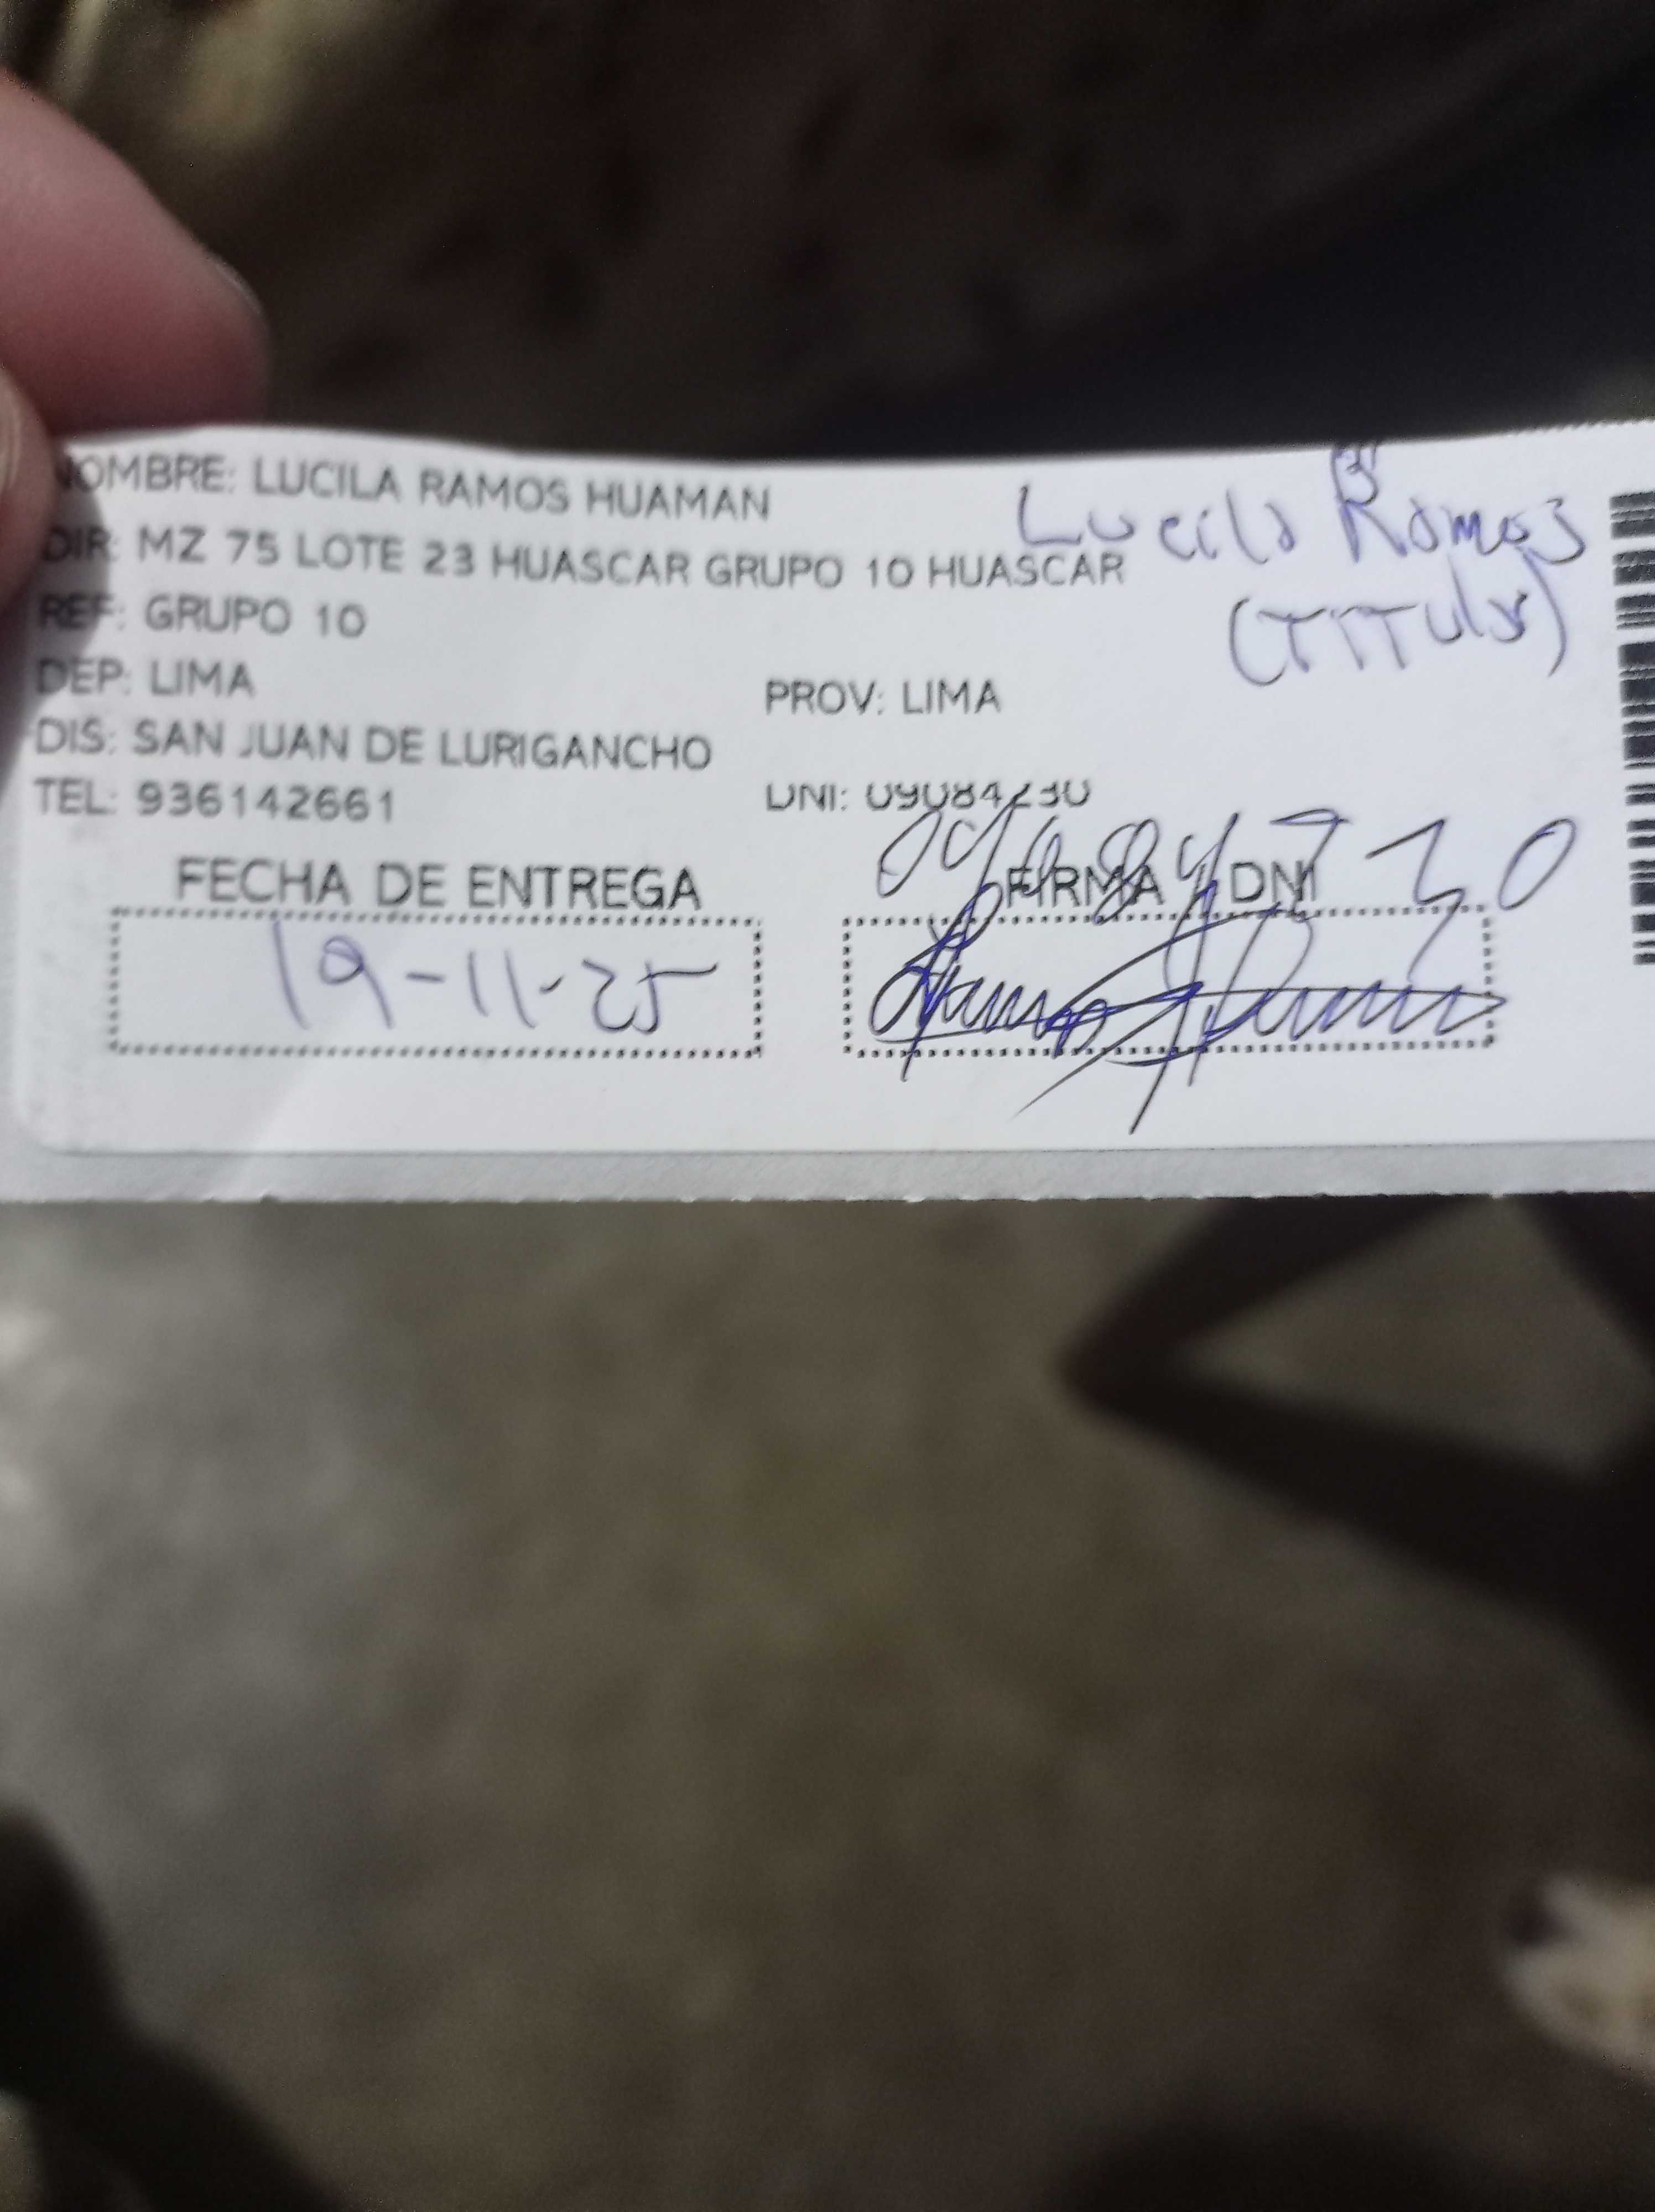 NOMBRE: LUCILA RAMOS HUAMAN
Lucila Ramos
DIR: MZ 75 LOTE 23 HUASCAR GRUPO 10 HUASCAR
(TITULAR)
REF: GRUPO 10
DEP: LIMA PROV: LIMA
DIS: SAN JUAN DE LURIGANCHO
TEL: 936142661 DNI: 09084230
FECHA DE ENTREGA FIRMA / DNI
19-11-25